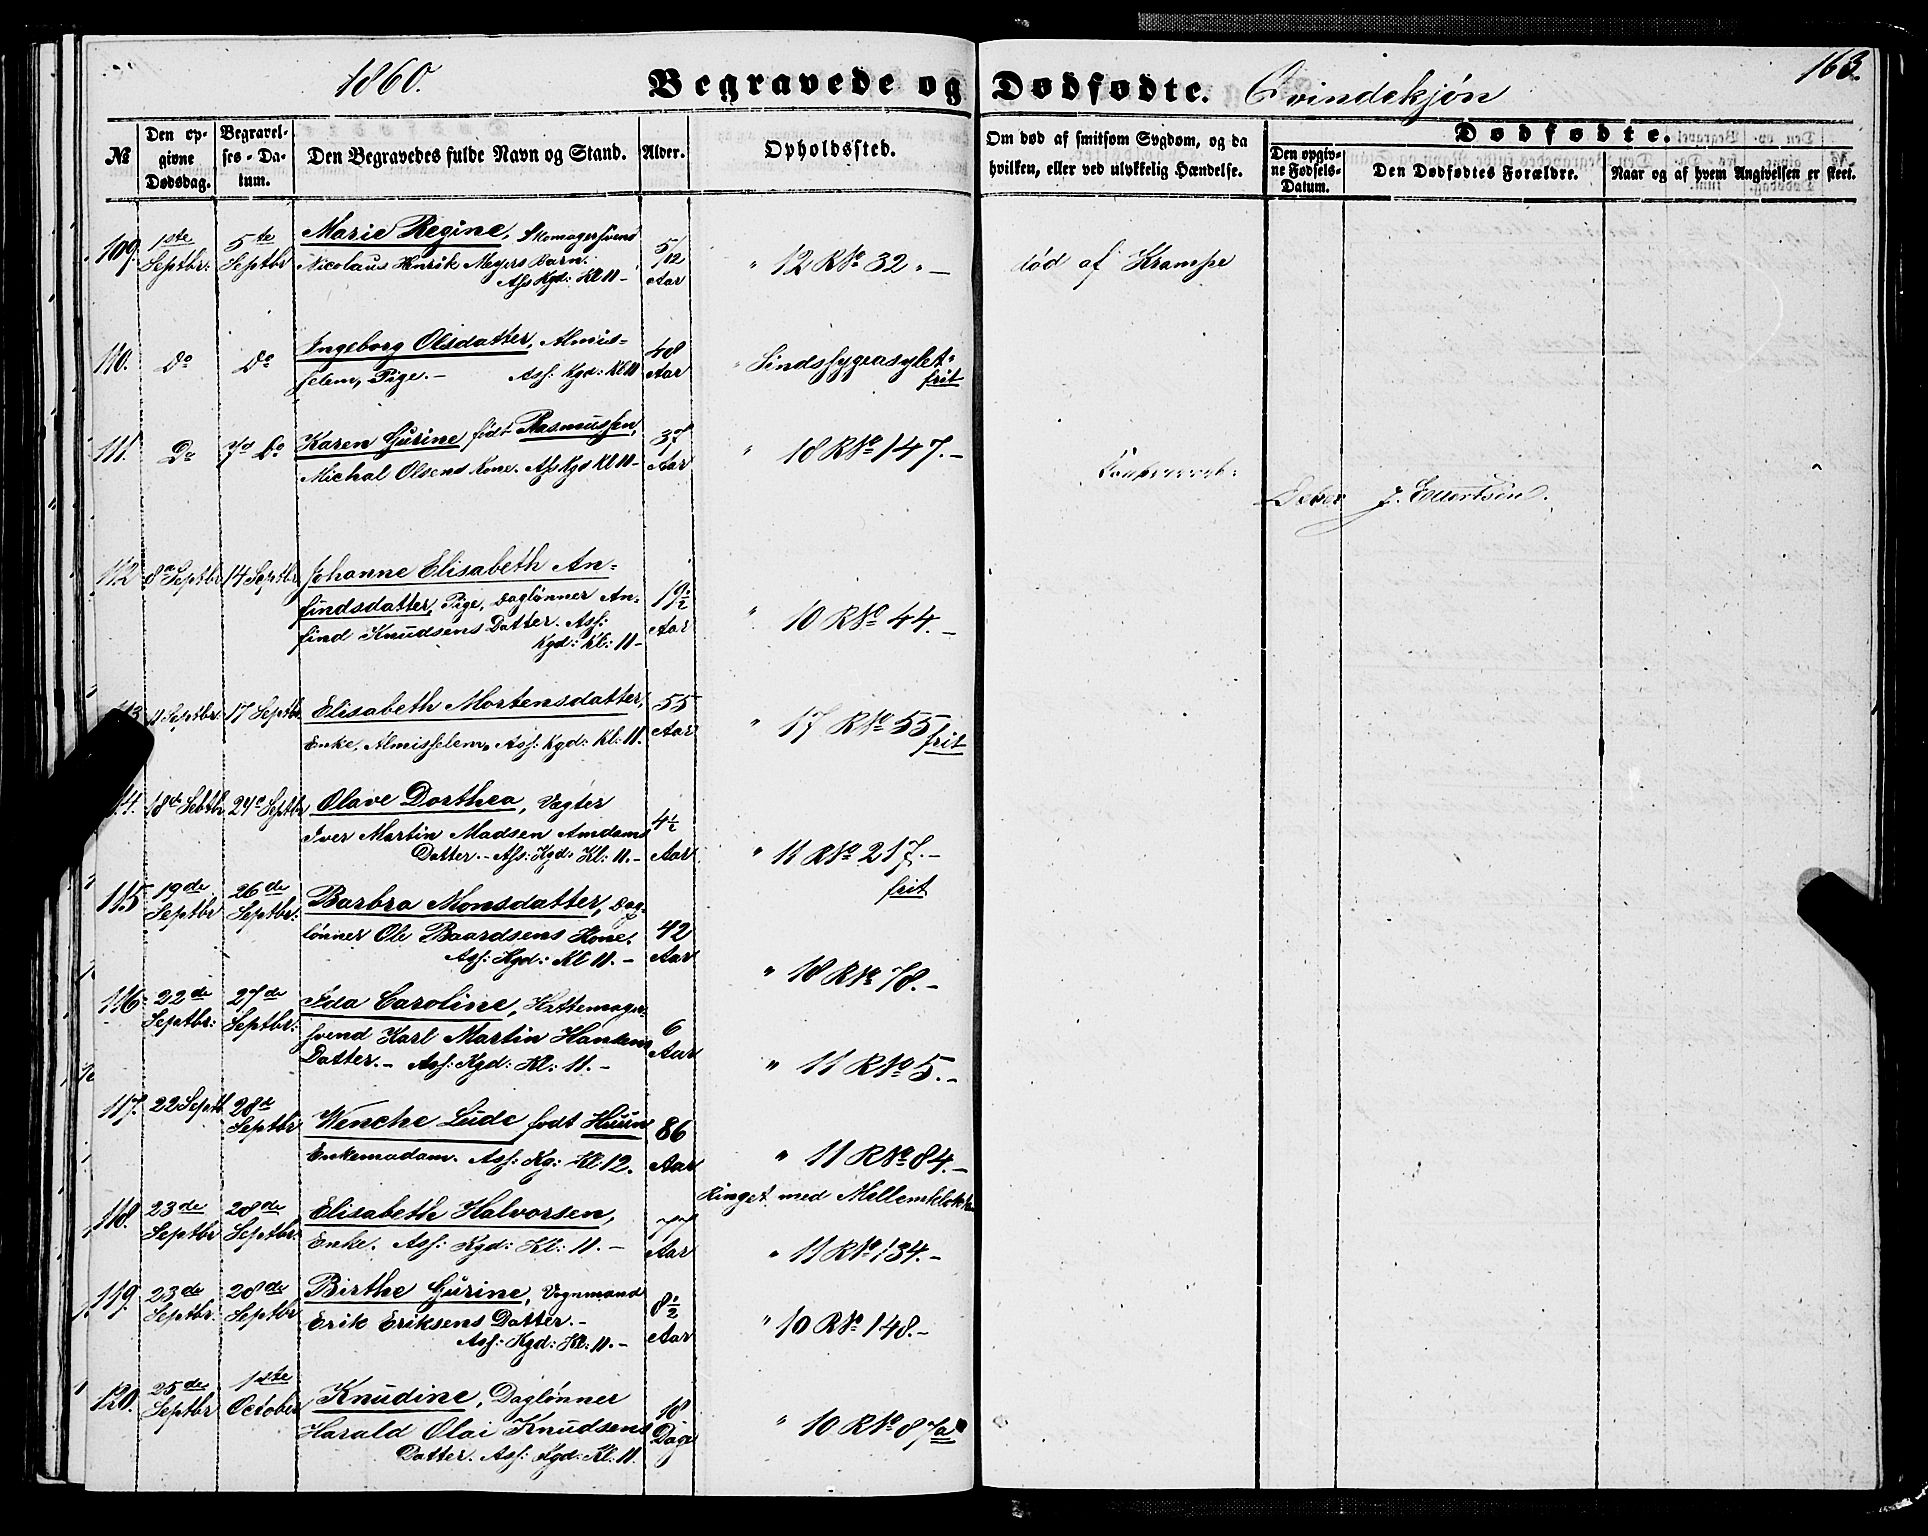 1860.
Begravede og Dødfødte. Qvindekjøn
163.
№
Den opgivne Dødsdag.
Begravelses-Datum.
Den Begravedes fulde Navn og Stand.
Alder.
Opholdssted.
Om død af smitsom Sygdom, og da hvilken, eller ved ulykkelig Hændelse.
Dødfødte.
Den opgivne Fødsels-Datum.
Den Dødfødtes Forældre.
Naar og af hvem Angivelsen er skeet.
109. 1ste Septbr: 5te Septbr Marie Regine, Skomagersvend 5/12 Aar " 12 R № 32 " — død af Krampe
Nicolaus Henrik Meyers Barn.
Ass Kgd: Kl 11 –
110. Do Do Ingeborg Olsdatter, Almis= 48 Aar " Sindssygeasylet "
selem, Pige. – Ass: Kgd: Kl 11 frit
111. Do 7de Do Karen Gurine født Rasmussen, 37 Aar " 18 R № 147. –
Michal Olsens Kone. Ass Kgd Kl 11 –
J. Ellertsen.
112 8de Septbr 14 Septbr Johanne Elisabeth An= 19½ Aar " 10 R № 44. –
findsdatter, Pige, Daglønner An=
find Knudsens Datter. Ass:
Kgd: Kl: 11 –
113 11 Septbr 17 Septbr Elisabeth Mortensdatter, 55 Aar " 17 R № 55
Enke, Almisselem, Ass: Kgd: Kl: 11. frit
114. 18de Sebtbr 24de Septbr Olave Dorthea, Vægter 4½ Aar " 11 R № 217. –
Iver Martin Madsen Amdams frit
Datter. – Ass: Kgd: Kl: 11. –
115 19de Septbr 26de Septbr: Barbra Monsdatter, Dag= 42 Aar " 18 R № 78. –
lønner Ole Baardsens Kone.
Ass: Kgd: Kl 11. –
116: 22de Septbr: 27de Septbr: Ida Caroline, Hattemager= 6 Aar " 11 R № 5. –
svend Karl Martin Hansens
Datter. – Ass: Kgd: Kl: 11. –
117. 22 Septb 28de Septbr Wenche Lude født Huun 86 Aar " 11 R № 84. –
Enkemadam. Ass: Kg: Kl 12. Ringet med Mellemklokken
118. 23de Septbr 28de Septbr: Elisabeth Halvorsen, 77 Aar " 11 R № 134. –
Enke. Ass: Kgd: Kl: 11. –
119. 23de Septbr: 28de Septbr Birthe Gurine, Vognmand 8½ Aar " 10 R № 148. –
Erik Eriksens Datter. –
Ass: Kgd: Kl: 11. –
120. 25de Septbr 1ste October Knudine, Daglønner 18 Dage " 10 R № 87a
Harald Olai Knudsens
Datter. Ass: Kgd: Kl. 11.